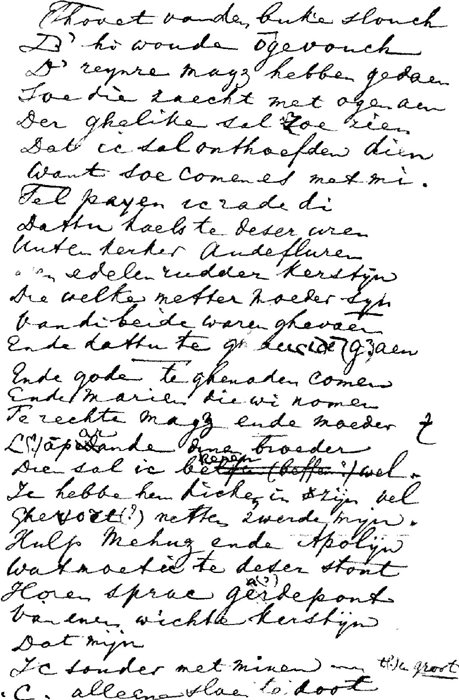 Thovet vanden buke slouch
D' hi woude ōgevouch
D' reynre magz hebben gedaen
Soe die zaecht met ogen aen
Der ghelike sal zoe zien
Dat ic sal onthoefden dien
Want soe comen es met mi.
Fel payen ic rade di
Dattu haels te deser uren
Uuten kerker Andefluren
den edelen rudder kerstijn
Die welke metter moeder syn
Van di beide waren ghevaen
Ende dattu te gaen
Ende gode te ghenaden comen
Ende marien die wi nomen
Te rechte magz ende moeder
ande broeder
Die sal ic wel.
Ic hebbe hen dicken in zijn vel
(?) metten zwerde mijn.
Hulp Mehug ende Apolijn
Wat moetic te deser stont
Horen sprac gerdepont
Van enen wichte kerstijn
Dat mijn
Ic sonder met minen groot
alleene slae te doot